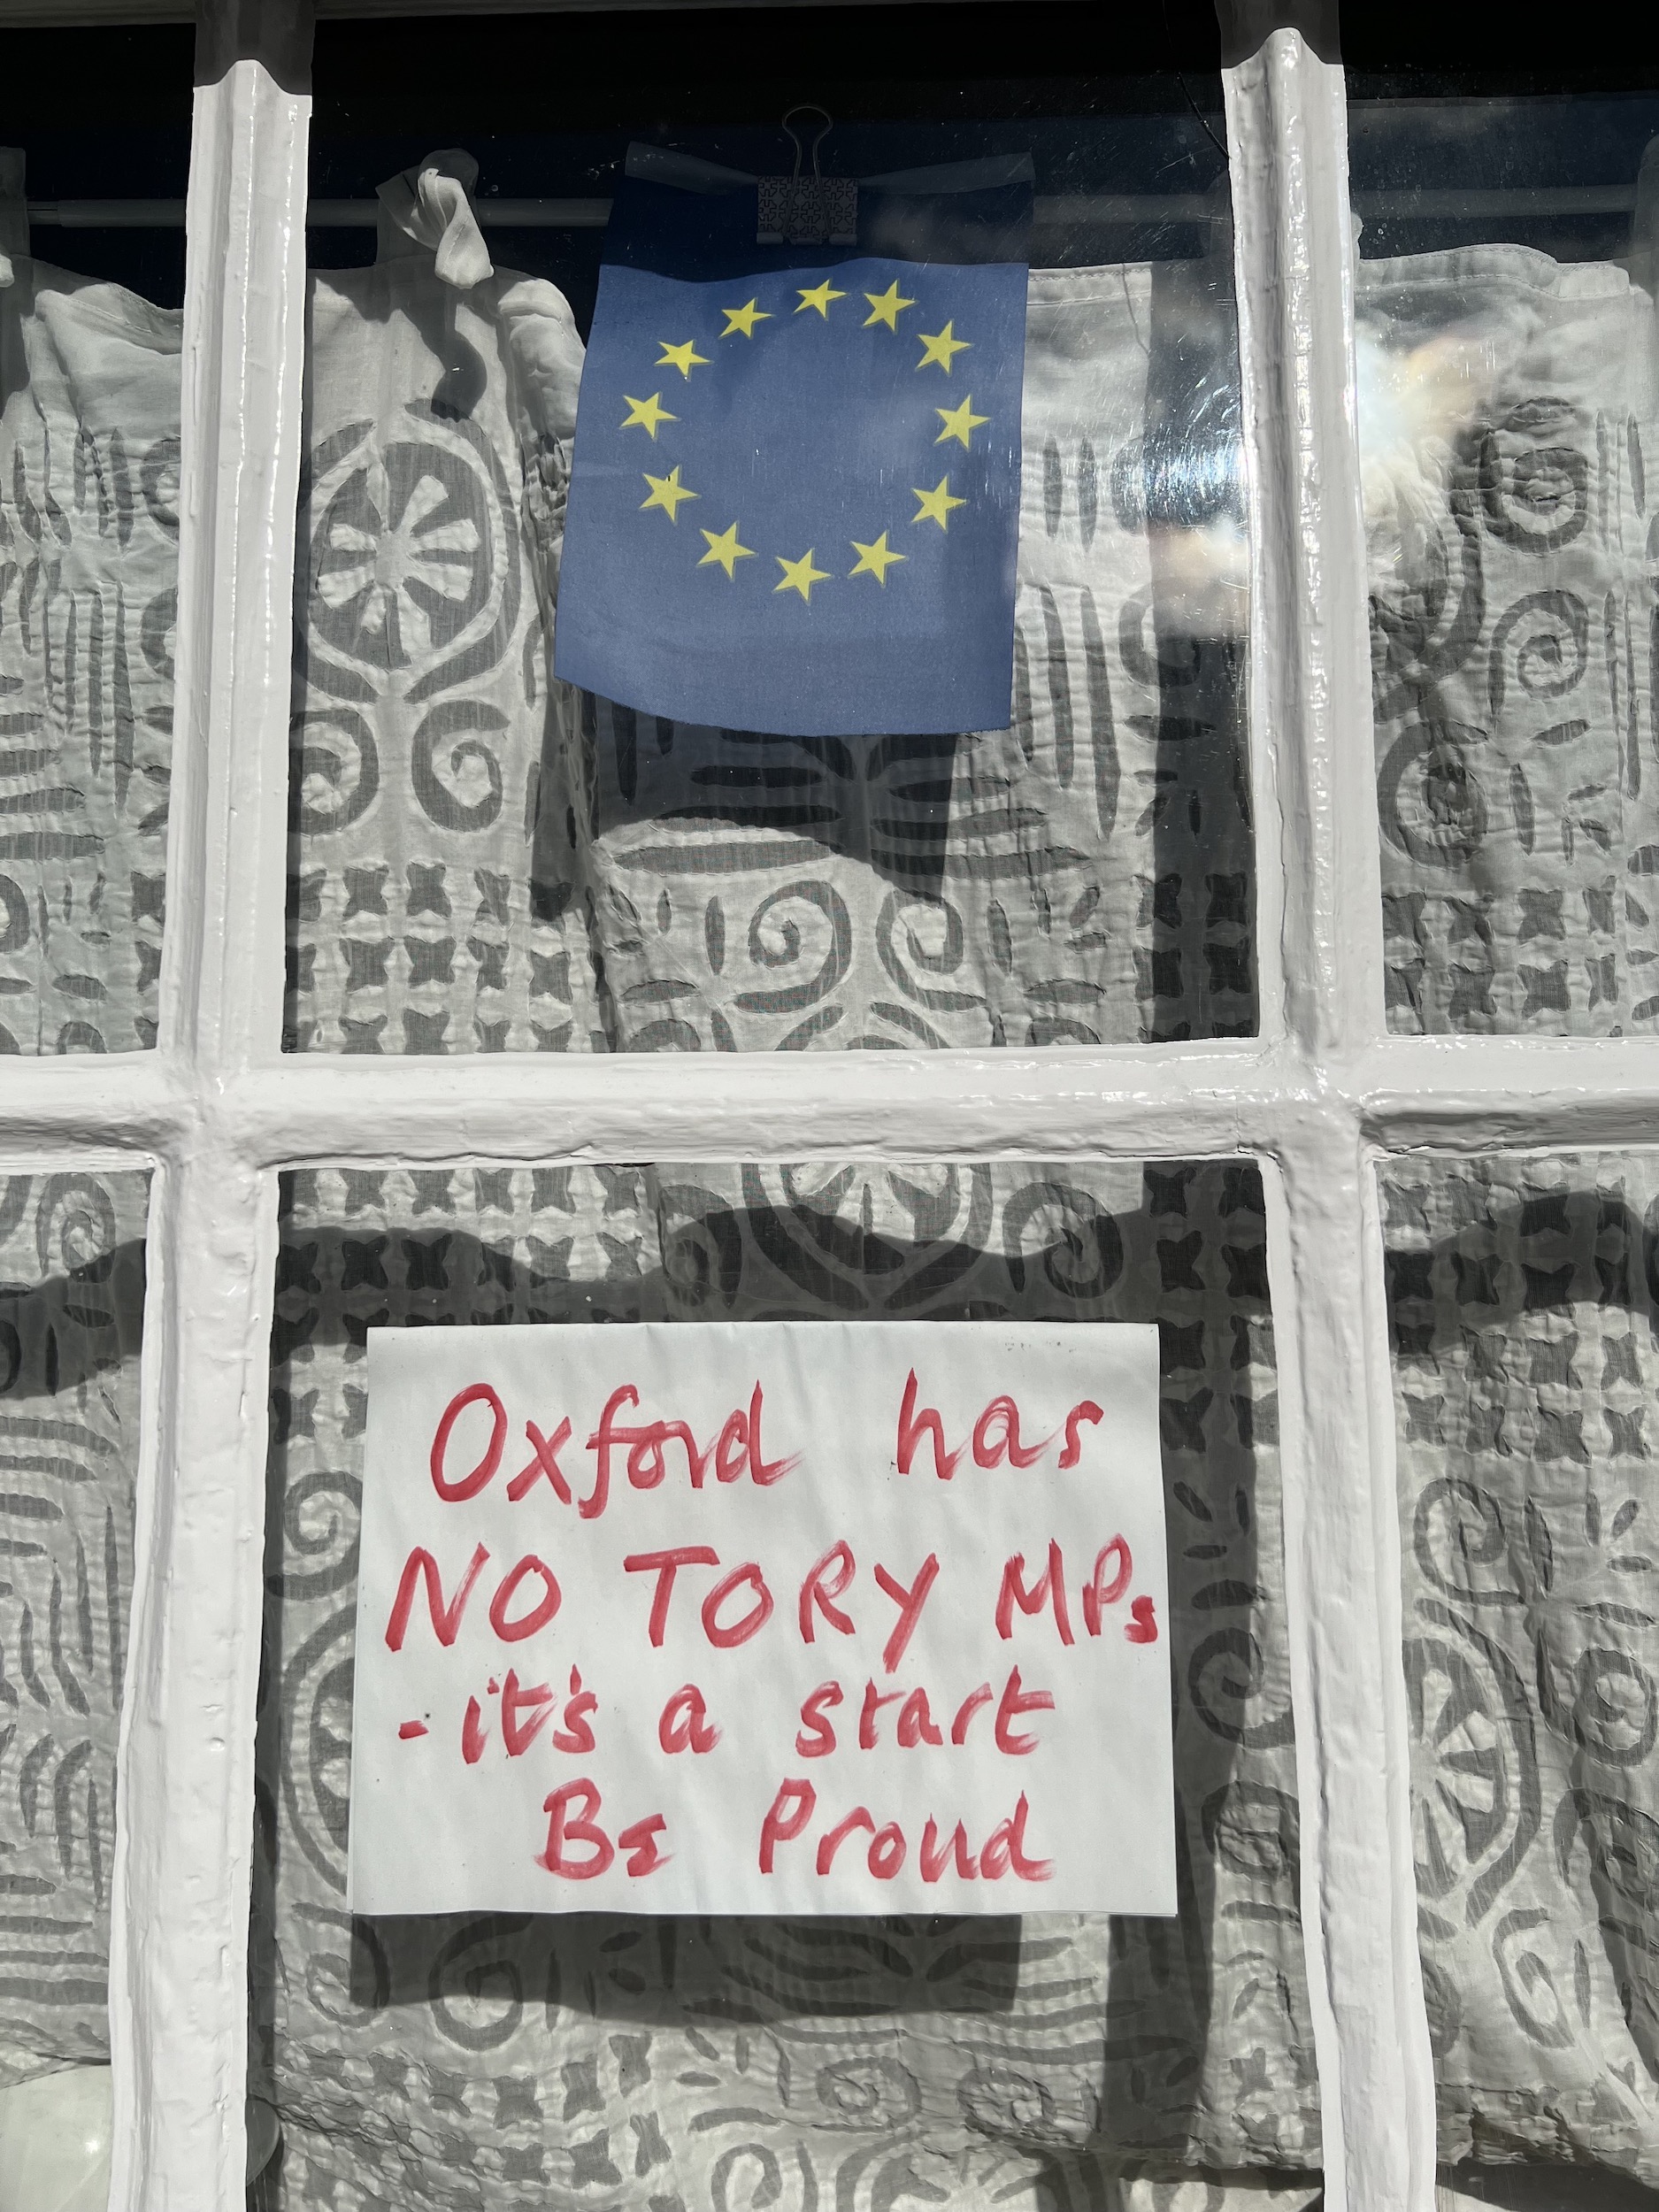 Oxford has
NO TORY MPs
- it's a start
Be Proud